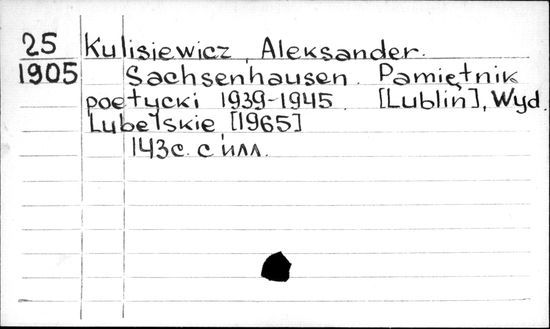 25
1905
Kulisiewicz, Aleksander.
Sachsenhausen. Pamiętnik
poetycki 1939-1945. [Lublin], Wyd.
Lubelskie, [1965]
143с. с илл.